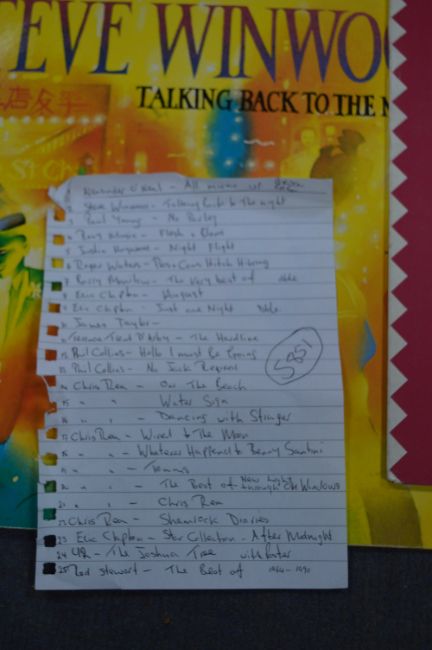 STEVE WINWOO
TALKING BACK TO THE N
店友平
Alexander O'Neal - All mixed up
2 Steve Winwood - Talking back to The night
3 Paul Young - No Parlez
4 Roxy Music - Flesh & Blood
5 Justin Hayward - Night Flight
6 Roger Waters - Pros + Cons Hitch Hiking
7 Barry Manilow - The Very best of
8 Eric Clapton - August
9 Eric Clapton - Just one Night Dble.
10 James Taylor -
11 Terence Trent D'Arby - The Hardline
12 Phil Collins - Hello I must Be Going
13 Phil Collins - No Jacket Required
14 Chris Rea - On The Beach
15 " " - Water Sign
16 " " - Dancing with Stranger
17 Chris Rea - Wired to The Moon
18 " " - Whatever Happened to Benny Santini
19 " " - Tennis
20 " " - The Best of New Light through Old Windows
21 " " - Chris Rea
22 Chris Rea - Shamrock Diaries
23 Eric Clapton - Star Collection - After Midnight
24 U2 - The Joshua Tree with Poster
25 Rod Stewart - The Best of